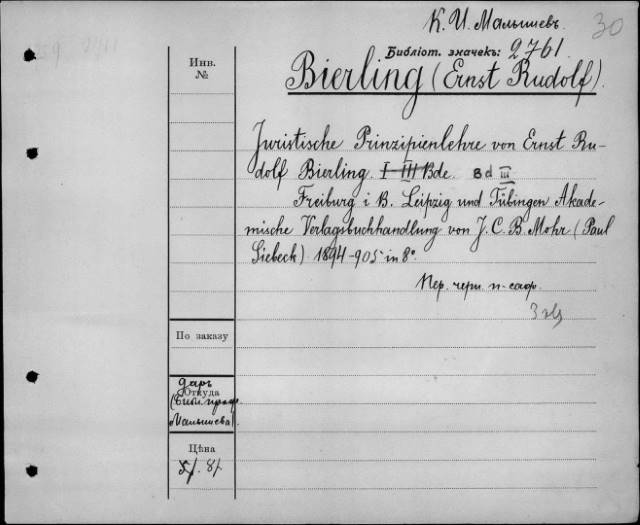 К. И. Малышевъ
30
Библіот. значекъ: 2761
Инв.
№
Bierling (Ernst Rudolf).
Juristische Prinzipienlehre von Ernst Ru-
dolf Bierling. I-III Bde. Bd III
Freiburg i B. Leipzig und Tübingen Akade-
mische Verlagsbuchhandlung von J. C. B. Mohr (Paul
Siebeck) 1894-905 in 8°
Пер. черн. п-саф.
По заказу
даръ
Откуда
Малышева)
Цѣна